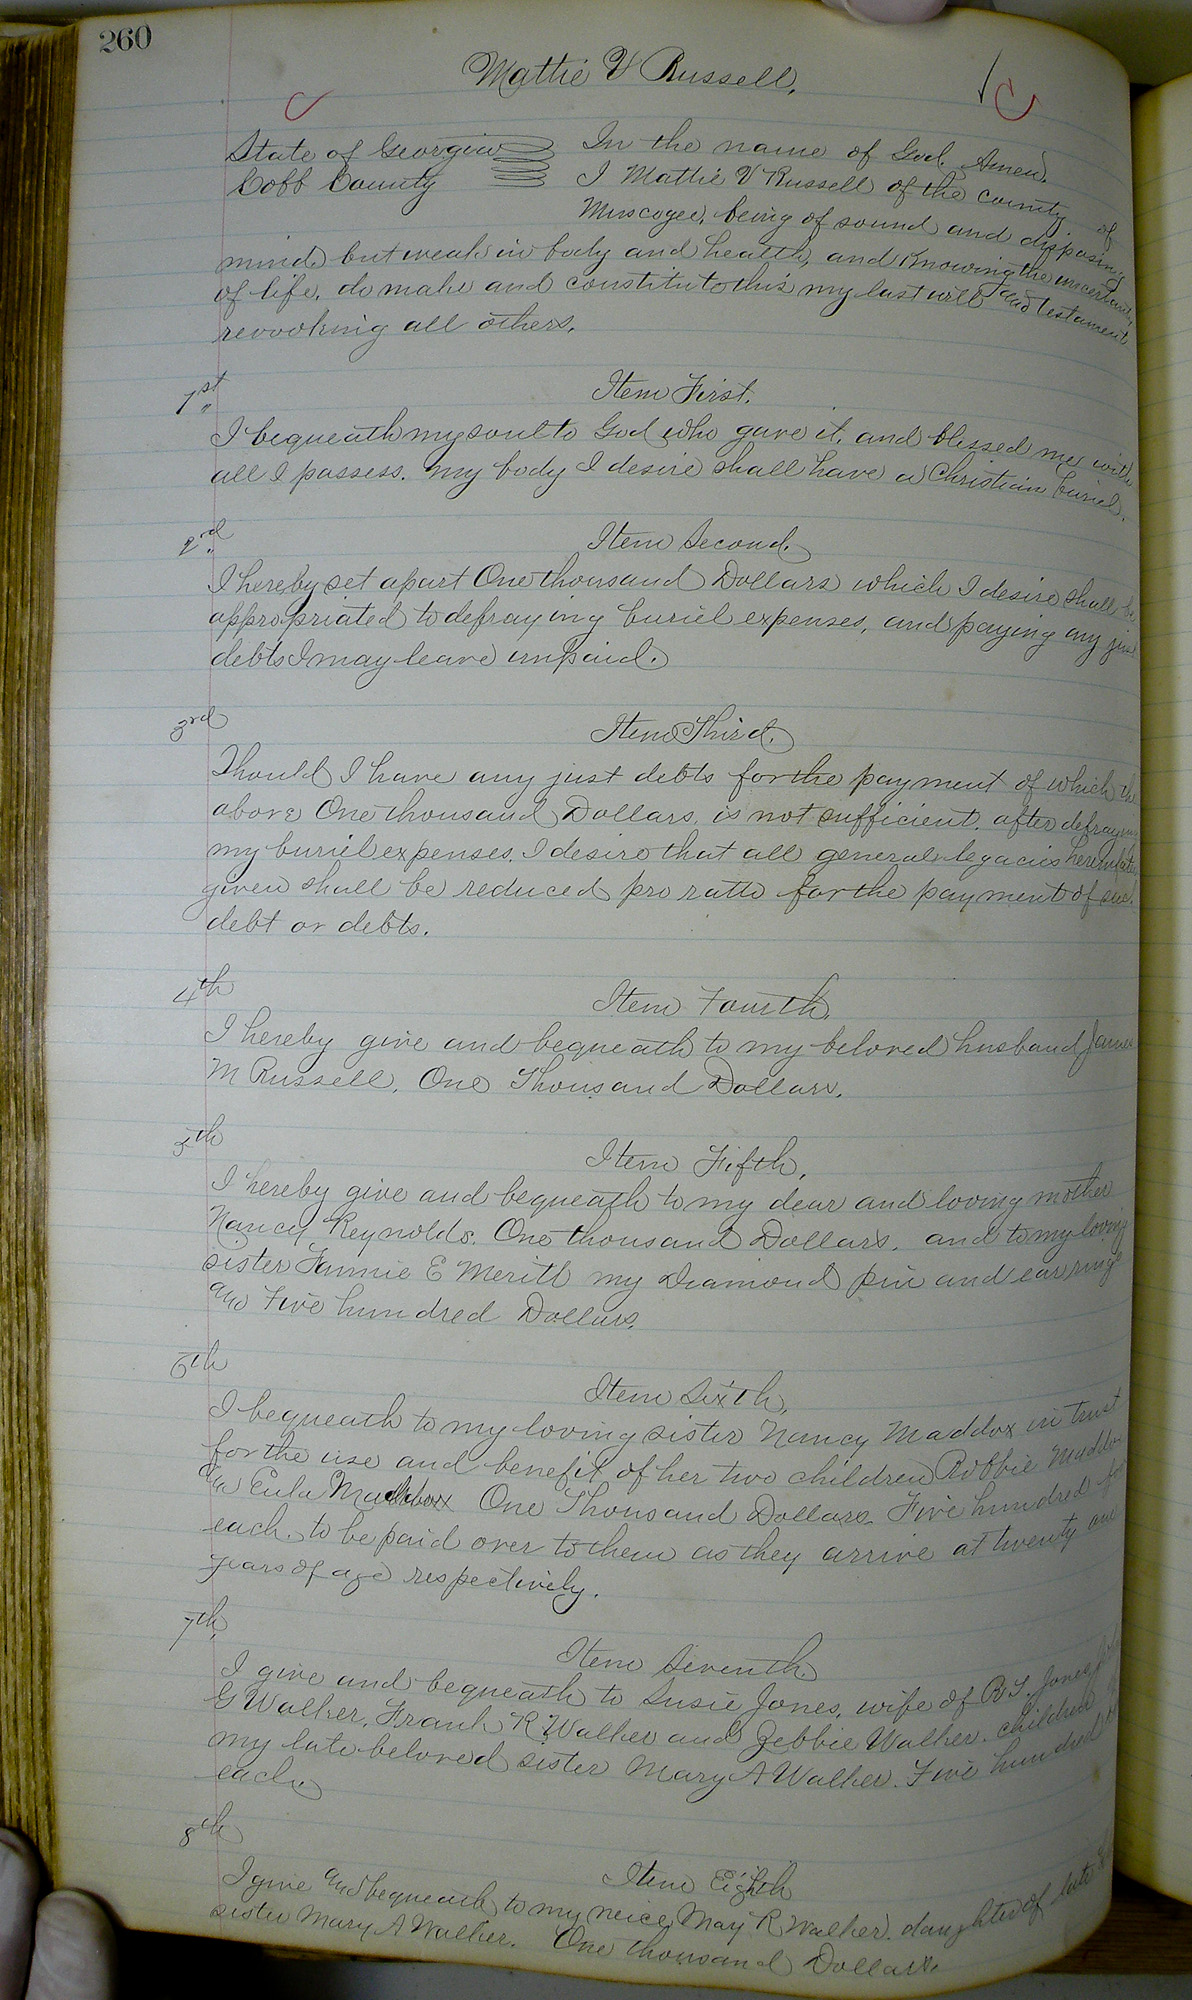 260
Mattie V Russell,
State of Georgia
Cobb County
In the name of God. Amen.
I Mattie V Russell of the county of
Muscogee, being of sound and disposing
mind but weak in body and health, and Knowing the uncertainty
of life, do make and constitute this my last will and testament
revoking all others.
1st
Item First.
I bequeath my soul to God who gave it, and blessed me with
all I possess. my body I desire shall have a Christian buriel.
2nd
Item Second.
I hereby set apart One thousand Dollars which I desire shall be
appropriated to defraying buriel expenses, and paying any just
debts I may leave unpaid.
3rd
Item Third.
Should I have any just debts for the payment of which the
above One thousand Dollars, is not sufficient, after defraying
my buriel expenses. I desire that all general legacies hereinafter
given shall be reduced pro ratto for the payment of such
debt or debts.
4th
Item Fourth.
I hereby give and bequeath to my beloved husband James
M Russell, One Thousand Dollars.
5th
Item Fifth.
I hereby give and bequeath to my dear and loving mother
Nancy Reynolds. One thousand Dollars. and to my loving
sister Fannie E Meritt my Diamond pin and ear rings
and Five hundred Dollars.
6th
Item Sixth.
I bequeath to my loving sister Nancy Maddox in trust
for the use and benefit of her two children Robbie Maddox
and Eula Maddox One Thousand Dollars. Five hundred for
each. to be paid over to them as they arrive at twenty one
years of age respectively.
7th
Item Seventh.
I give and bequeath to Susie Jones, wife of B S. Jones, John
G Walker, Frank R Walker and Zebbie Walker. children of
my late beloved sister Mary A Walker. Five hundred
each.
8th
Item Eighth
I give and bequeath to my neice May R Walker. daughter of late
sister Mary A Walker. One thousand Dollars.